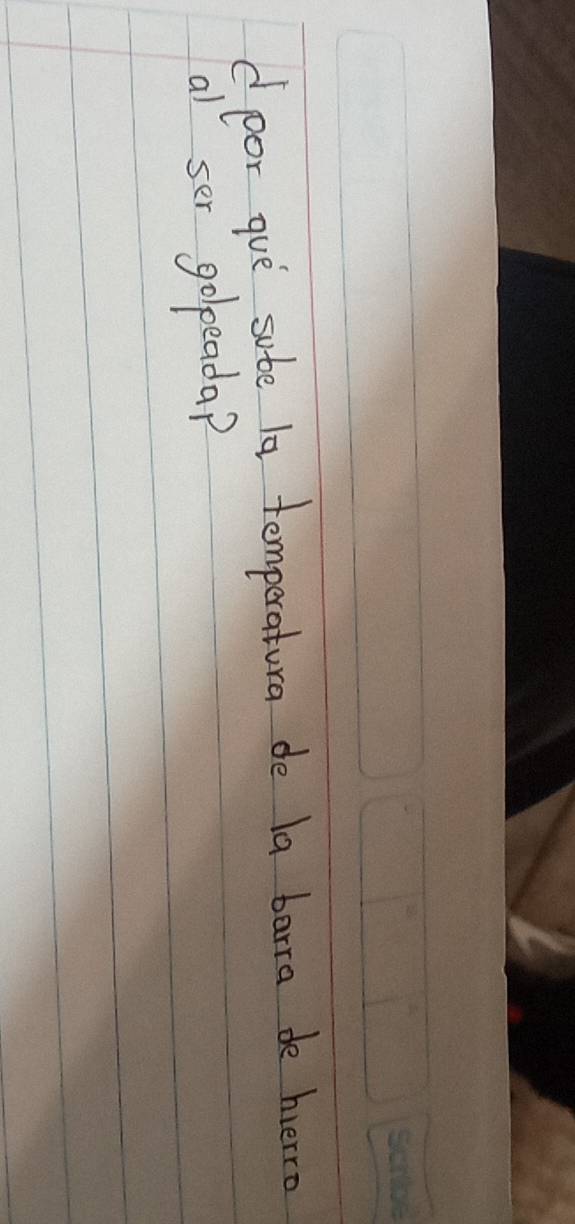 Scribe
¿por qué sube la temperatura de la barra de hierro
al ser golpeada?